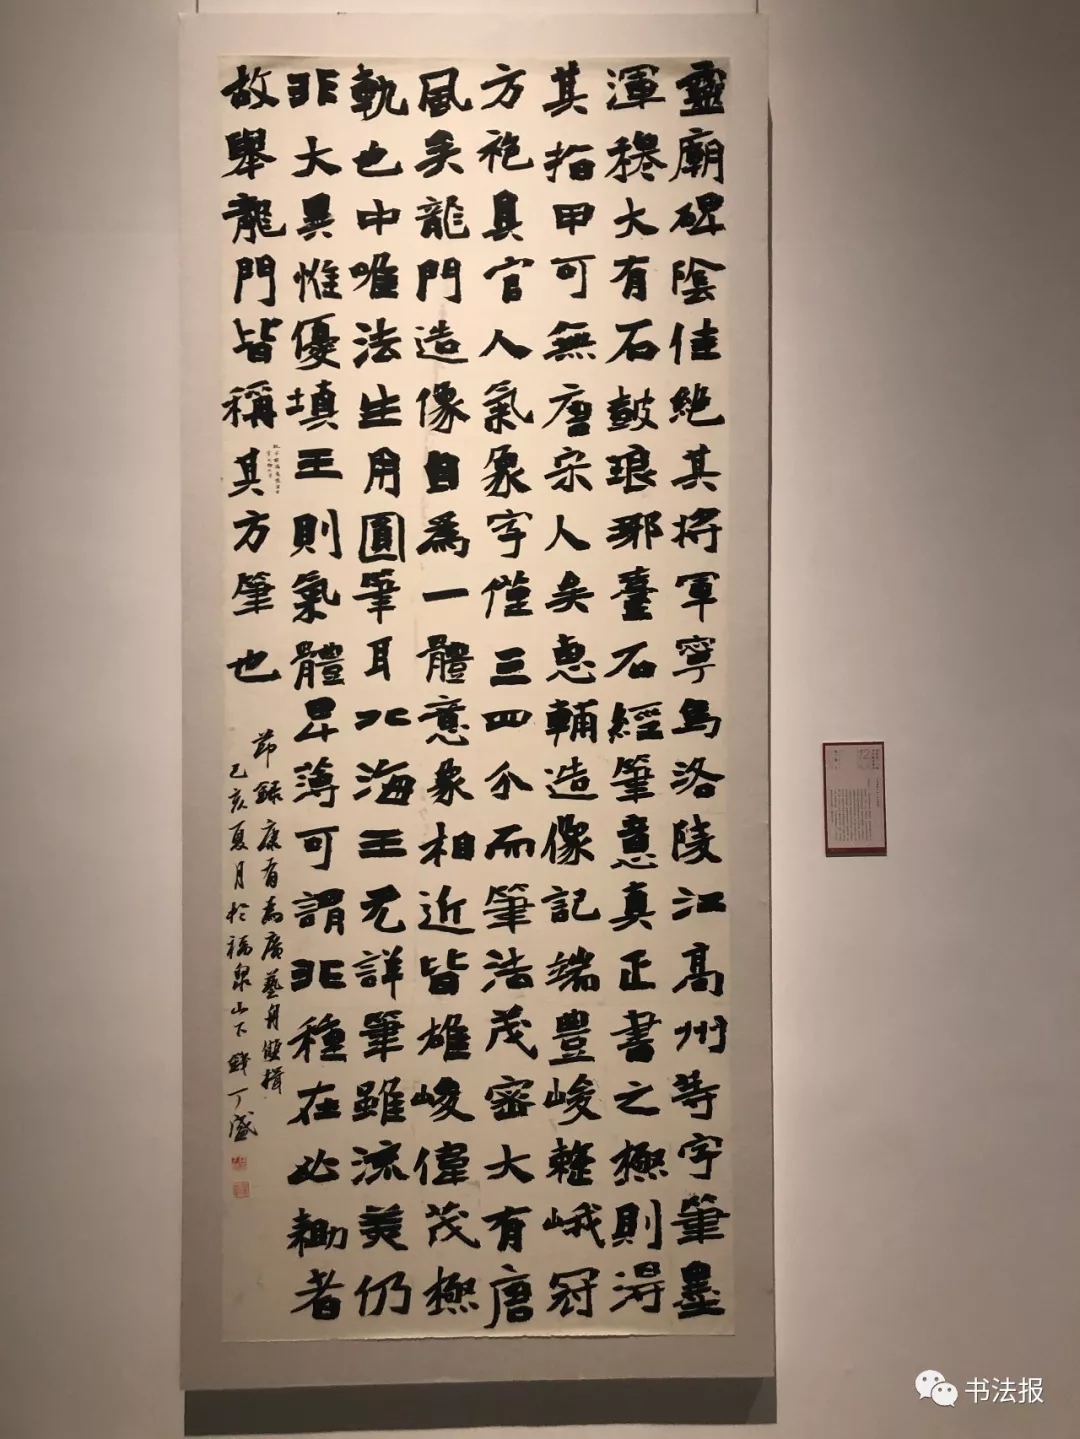 靈廟碑陰佳絕其將軍寧烏洛陵江高州等字筆墨
渾穆大有石鼓琅邪臺石經筆意真正書之極則得
其指甲可無唐宋人矣惠輔造像記端豐峻整峨冠
方袍具官人氣象字僅三四分而筆法茂密大有唐
風矣龍門造像自為一體意象相近皆雄峻偉茂極
軌也中唯法生用圓筆耳北海王元詳筆雖流美仍
非大異惟優填王則氣體卑薄可謂非種在必鋤者
故舉龍門皆稱其方筆也
節録康有為廣藝舟雙楫
己亥夏月於福泉山下錢丁盛
书法报